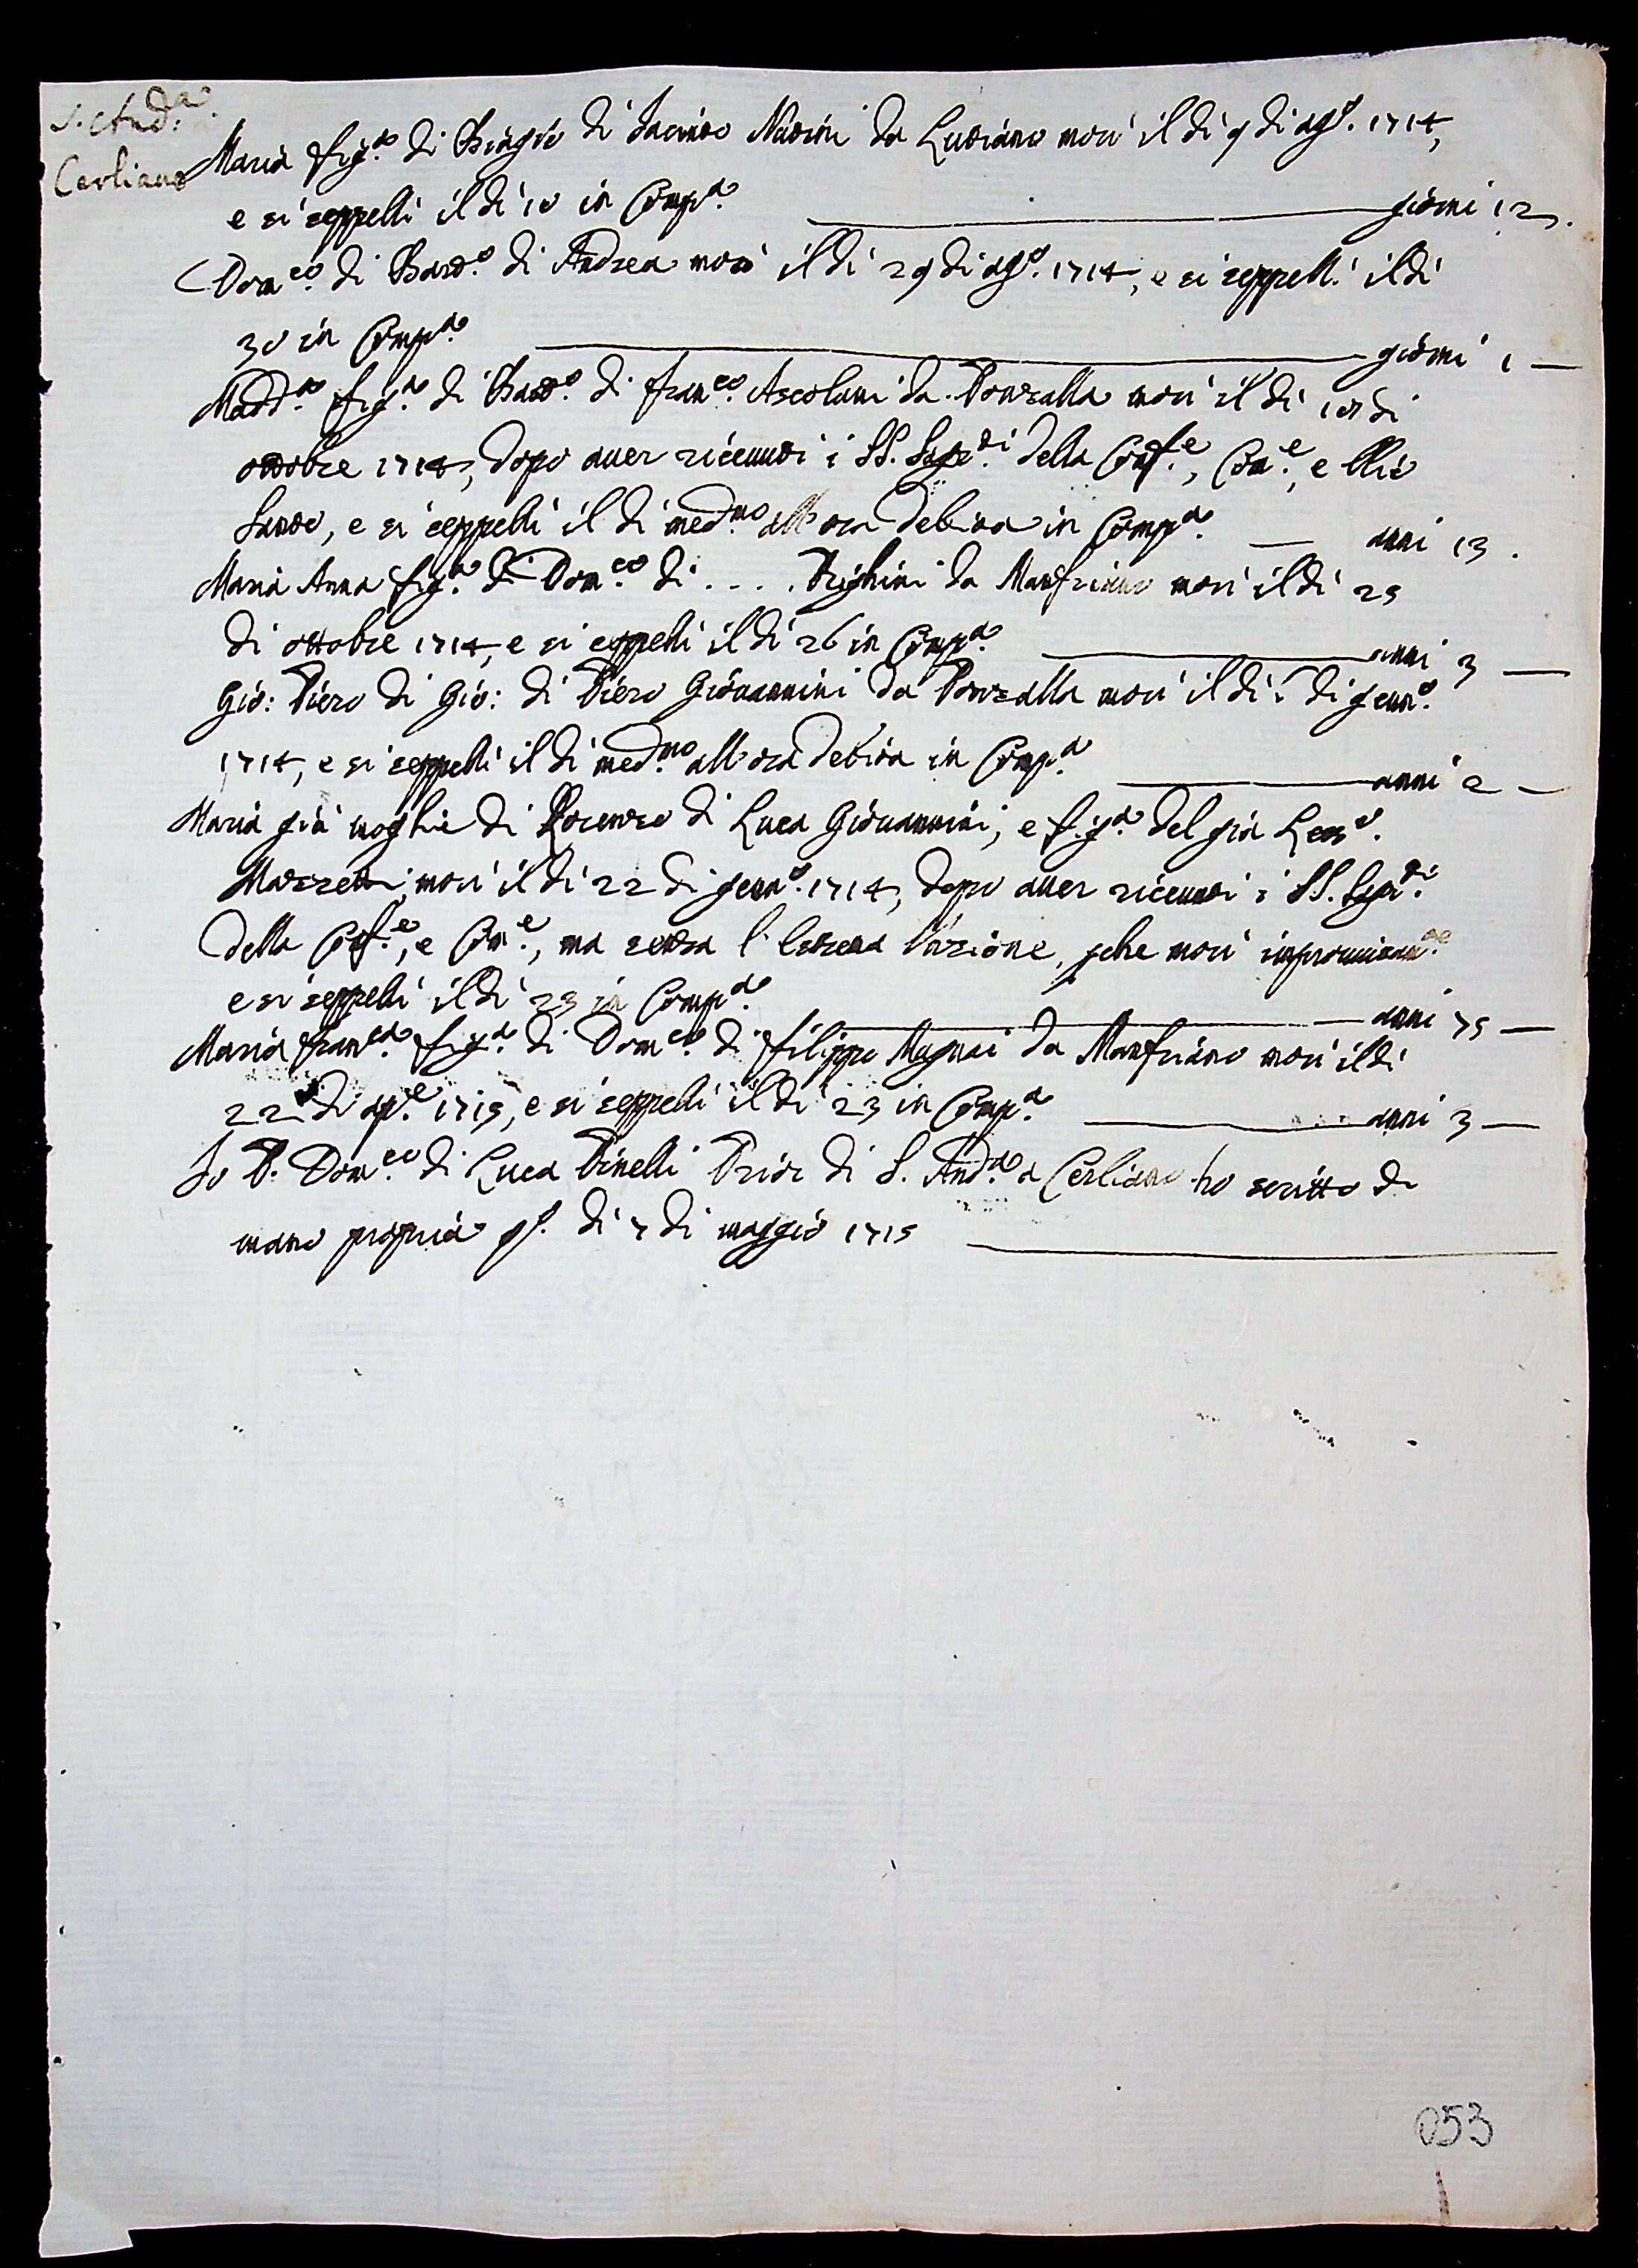 S. And:a
Cerliano
Maria fig.a di Biagio di Jacinto Nutini da Lutiano morì il dì 9 di ag.o 1714,
e si seppellì il dì 10 in Comp.a giorni 12.
Dom.co di Bart.o di Andrea morì il dì 29 di ag.o 1714, e si seppellì il dì
30 in Comp.a giorni 1
Madd.a fig.a di Bart.o di Fran.co Ascolani da Ponzalla morì il dì 10 di
ottobre 1714, dopo auer riceuuti i SS. Sagr.ti della Conf.e, Com.e, e Olio
Santo, e si seppellì il dì med.mo all'ora debita in Comp.a anni 13.
Maria Anna fig.a di Dom.co di .... Righini da Manfriano morì il dì 25
di ottobre 1714, e si seppellì il dì 26 in Comp.a anni 3
Gio: Piero di Gio: di Piero Giouannini da Ponzalla morì il dì di genn.o
1714, e si seppellì il dì med.mo all'ora debita in Comp.a anni 2
Maria già moglie di Lorenzo di Luca Giouannini, e fig.a del già
Mazzetti morì il dì 22 di genn.o 1714, dopo auer riceuuti i SS. Sagr.ti
della Conf.e, e Com.e, ma senza l'Estrema Unzione, pche morì improuisam.te
e si seppellì il dì 23 in Comp.a anni 75
Maria Fran.ca fig.a di Dom.co di Filippo Magnai da Manfriano morì il dì
22 di ap.e 1715, e si seppellì il dì 23 in Comp.a anni 3
Io P. Dom.co di Luca Pinelli Prior di S. And.a a Cerliano ho scritto di
mano propria q.o dì 7 di maggio 1715
053